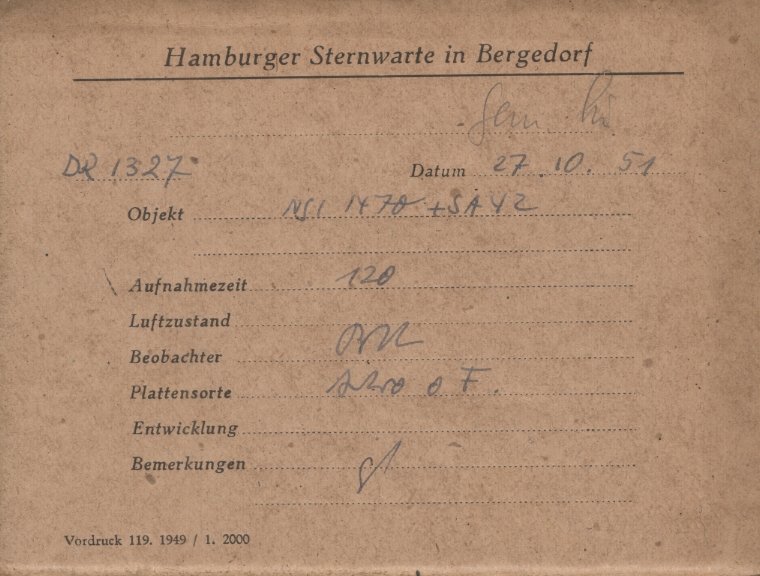 Hamburger Sternwarte in Bergedorf
DR 1327 Datum 27.10.51
Objekt NGC 1470 + SA 42
Aufnahmezeit 120
Luftzustand
Beobachter
Plattensorte Astro F.
Entwicklung
Bemerkungen
Vordruck 119. 1949 / 1. 2000